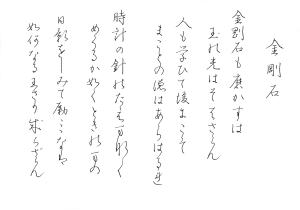 金剛石
金剛石も磨かずは
玉れ光はそはさらん
人も学ひて後にこそ
まことの徳はあらはるれ
時計の針のたえまなく
めくるか如くときのまの
日影をしみて励みなは
如何なるわさか成らさらん